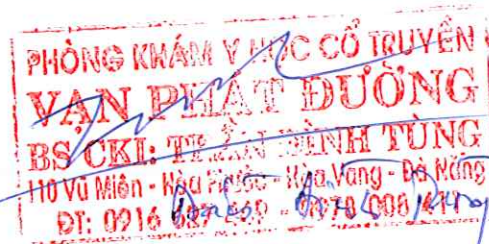 PHÒNG KHÁM Y HỌC CỔ TRUYỀN
VẠN PHÁT ĐƯỜNG
BS CKI: TRẦN ĐÌNH TÙNG
110 Vũ Miên - Hòa Phước - Hòa Vang - Đà Nẵng
ĐT: 0916